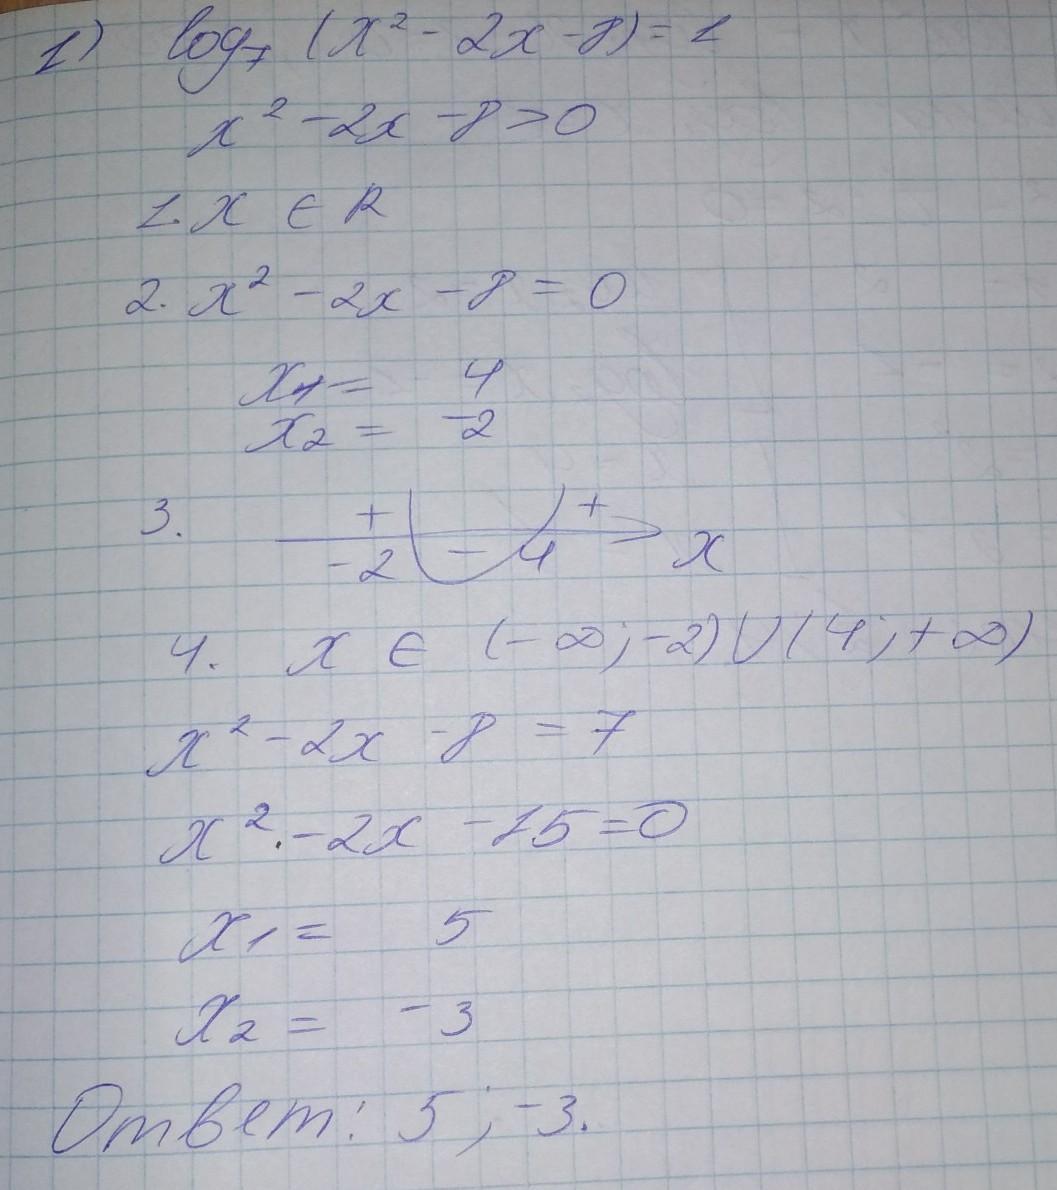 1) log₇ (x² - 2x - 8) = 1
x² - 2x - 8 > 0
1. x ∈ R
2. x² - 2x - 8 = 0
x₁ = 4
x₂ = -2
3. + +
-2 - 4 x
4. x ∈ (-∞; -2) ∪ (4; +∞)
x² - 2x - 8 = 7
x² - 2x - 15 = 0
x₁ = 5
x₂ = -3
Ответ: 5; -3.